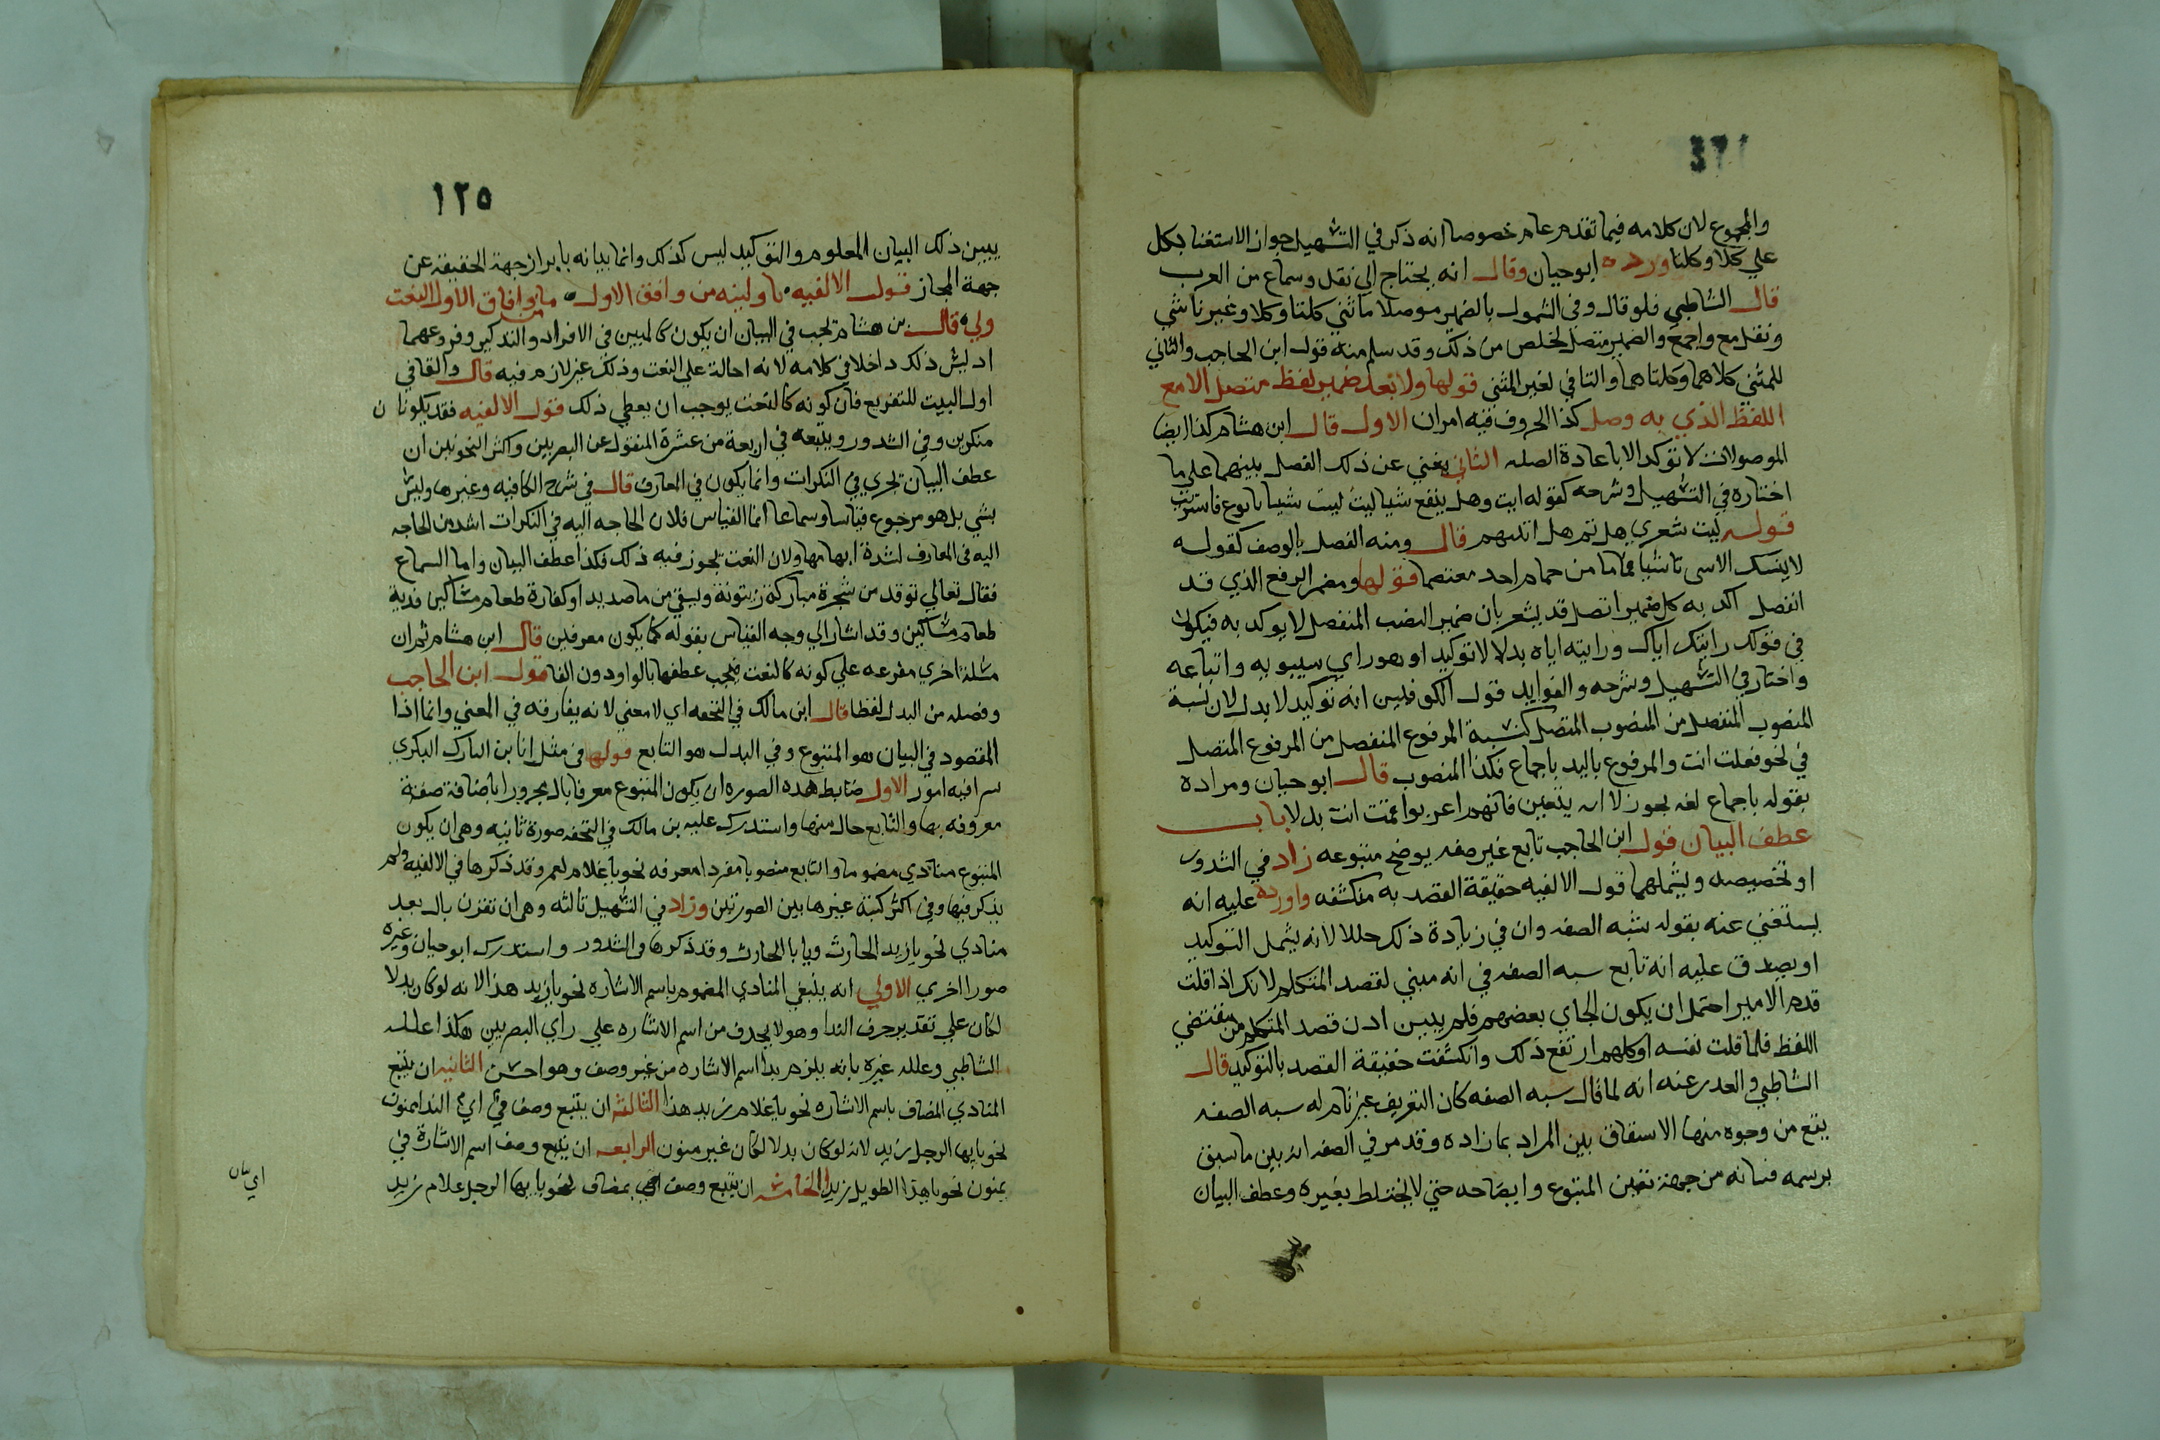 والمجموع لان كلامه فيما تقدم عام خصوصا انه ذكر في التسهيل جواز الاستغنا بكل
علي كلا وكلتا ورده ابوحيان وقال انه يحتاج الي نقل وسماع من العرب
قال الشاطبي فلو قال وفي الشمول بالضمير موصلا ما ثني كلتا وكلا وغير ذا شي
ونفل مع واجمع والضمير متصل لخلص من ذلك وقد سلم منه قول ابن الحاجب والثاني
للمثني كلاهما وكلتاهما والتا في لغير المثني قولها ولا تعد ضمير لفظ متصل الا مع
اللفظ الذي به وصل كذا الحروف فيه امران الاول قال ابن هشام كذا ايضا
الموصولات لا توكد الا باعادة الصله الثاني يغني عن ذلك الفصل بينهما علي ما
اختاره في التسهيل وشرحه كقوله ليت وهل ينفع شيا ليت ليت شبابا بوع فاشتريت
قوله ليت شعري هل ثم هل اتينهم قال ومنه الفصل بالوصف كقوله
لا ينسك الاسى تاسيا فما ما من حمام احد معتصما قولها ومضمر الرفع الذي قد
انفصل اكد به كل ضمير اتصل قد يشعر بان ضمير النصب المنفصل لا يوكد به فيكون
في قولك رايتك اياك ورايته اياه بدلا لا توكيد او هو راي سيبويه واتباعه
واختار في التسهيل وشرحه والفوايد قول الكوفيين انه توكيد لا بدل لان نسبة
المنصوب المنفصل من المنصوب المتصل كنسبة المرفوع المنفصل من المرفوع المتصل
في نحو فعلت انت والمرفوع باليد باجماع فكذا المنصوب قال ابو حيان ومراده
بقوله باجماع لغه يجوز لا انه يتعين فانهم اعربوا قمت انت بدلا باب
عطف البيان قول ابن الحاجب تابع غير صفه يوضح متبوعه زاد في الشدور
او تخصيصه ويشملهما قول الالفيه حقيقة القصد به منكشفه واورده عليه انه
يستغني عنه بقوله شبه الصفه وان في زيادة ذلك خللا لانه يشمل التوكيد
او يصدق عليه انه تابع سبه الصفه في انه مبني لقصد المتكلم لانك اذا قلت
قدم الامير احتمل ان يكون الجاي بعضهم فلم يبين اذن قصد المتكلم من مقتضي
اللفظ فلما قلت نفسه او كلهم ارتفع ذلك وانكشفت حقيقة القصد بالتوكيد قال
الشاطبي والعدر عنه انه لما قال سبه الصفه كان التعريف غير تام له سبه الصفه
يقع من وجوه منها الاستقاق بين المراد بما زاده وقد مر في الصفه انه بين ما سبق
برسمه فبيانه من جهة تعين المتبوع وايضاحه حتي لا يختلط بغيره وعطف البيان
١٢٥
يبين ذلك البيان المعلوم والتوكيد ليس كذلك وانما بيانه بابراز جهة الحقيقه عن
جهة المجاز قول الالفيه فاولينه من وفاق الاول ما من وفاق الاول النعت
ولي قال بن هشام تجب في البيان ان يكون كالمبين في الافراد والتدكير وفروعهما
اد ليس ذلك داخلا في كلامه لانه احالة علي النعت وذلك غير لازم فيه قال والفا في
اول البيت للتفريع فان كونه كالنعت يوجب ان يعطي ذلك قول الالفيه فقد يكونان
منكرين وفي الشدور ويتبعه في اربعة من عشرة المنقول عن البصريين واكثر النحويين ان
عطف البيان لا يجري في النكرات وانما يكون في المعارف قال في شرح الكافيه وغيرها وليس
بشي بل هو مرجوع قياسا وسماعا اما القياس فلان الحاجه اليه في النكرات اشد من الحاجه
اليه في المعارف لشدة ابهامها ولان النعت يجوز فيه ذلك فكذا عطف البيان واما السماع
فقال تعالي توقد من شجرة مباركة زيتونة ويسقي من ما صديد او كفارة طعام مساكين فدية
طعام مساكين وقد اشار الي وجه القياس بقوله كما يكون معرفين قال ابن هشام ثم ان
مسئلة اخري مفرعه علي كونه كالنعت فيجب عطفها بالواو دون الفا قول ابن الحاجب
وفصله من البدل لفظا قال ابن مالك في التحفه اي لا معني لانه يفارقه في المعني وانما اذا
المقصود في البيان هو المتبوع وفي البدل هو التابع قولها في مثل انا بن التارك البكري
بشر افيه امور الاول ضابط هده الصوره ان يكون المتبوع معرفا بال مجرورا باضافة صفة
معروفه بها والتابع خال منها واستدرك عليه بن مالك في التحفه صورة ثانيه وهي ان يكون
المتبوع منادي مضموما والتابع منصوبا مفردا معرفه نحو يا غلام يعمر وقد ذكرها في الالفيه ولم
يذكر فيها وفي اكثر كتبه غيرها بين الصورتين وزاد في التسهيل ثالثه وهي ان تقرن بال بعد
منادي نحو يا زيد الحارث ويا با الحارث وقد ذكرها في الشدور واستدرك ابو حيان وغيره
صورا اخري الاولي انه يتبع المنادي المضموم باسم الاشاره نحو يا زيد هذا لانه لو كان بدلا
لكان علي تقدير حرف الندا وهو لا يحدف من اسم الاشاره علي راي البصريين هكذا علله
الشاطبي وعلله غيره بانه يلزم بدا اسم الاشاره من غير وصف وهو احسن الثانيه ان يتبع
المنادي المضاف باسم الاشاره نحو يا غلام زيد هذا الثالثة ان يتبع وصف في اي الندا بمنون
نحو يايها الرجل زيد لانه لو كان بدلا لكان غير منون الرابعه ان يتبع وصف اسم الاشارة في
بمنون نحو يا هذا الطويل زيد الخامسه ان يتبع وصف اي بمضاف نحو يا ايها الرجل غلام زيد